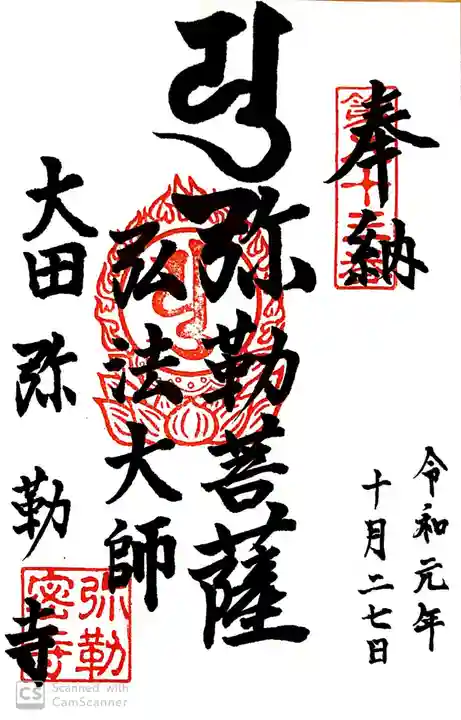 奉納
弥勒菩薩
弘法大師
大田弥勒寺
令和元年
十月二七日
弥勒
密寺
CS Scanned with
CamScanner